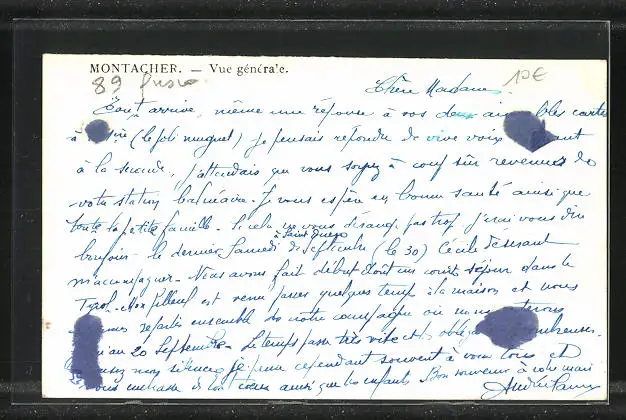 MONTACHER. — Vue générale.
89
10€
Chère Madame
Tout arrive, même une réponse à vos deux cartes
à (le joli muguet) je pensais répondre de vive voix
à la seconde, j'attendais que vous soyez à coup sûr revenues de
votre station balnéaire. Je vous espère en bonne santé ainsi que
toute la petite famille. Si cela ne vous dérange pas trop j'irai vous dire
à Saint
bonjour le dernier Samedi de Septembre (le 30) Cécile désirant
m'accompagner. Nous avons fait début Août un court séjour dans le
Tyrol. Mon filleul est venu passer quelque temps à la maison et nous
repartis ensemble de notre campagne où nous
au 20 Septembre. Le temps passe très vite et les
mon silence je pense cependant souvent à vous tous et
vous embrasse de tout coeur ainsi que les enfants. Bon souvenir à votre mari